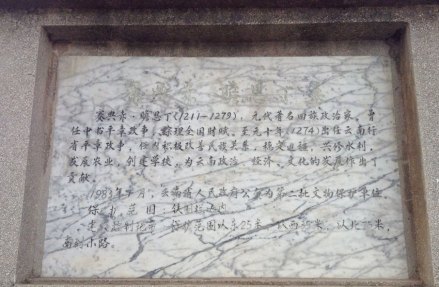 赛典赤·赡思丁墓
赛典赤·赡思丁(1211—1279),元代著名回族政治家。曾
任中书平章政事,综理全国财赋。至元十年(1274)出任云南行
省平章政事,任内积极改善民族关系,稳定边疆,兴修水利,
发展农业,创建学校,为云南政治、经济、文化的发展作出了
贡献。
198年 月,云南省人民政府公布为第二批文物保护单位。
保护范围:
东25米,西 米,北 米,
南到小路。